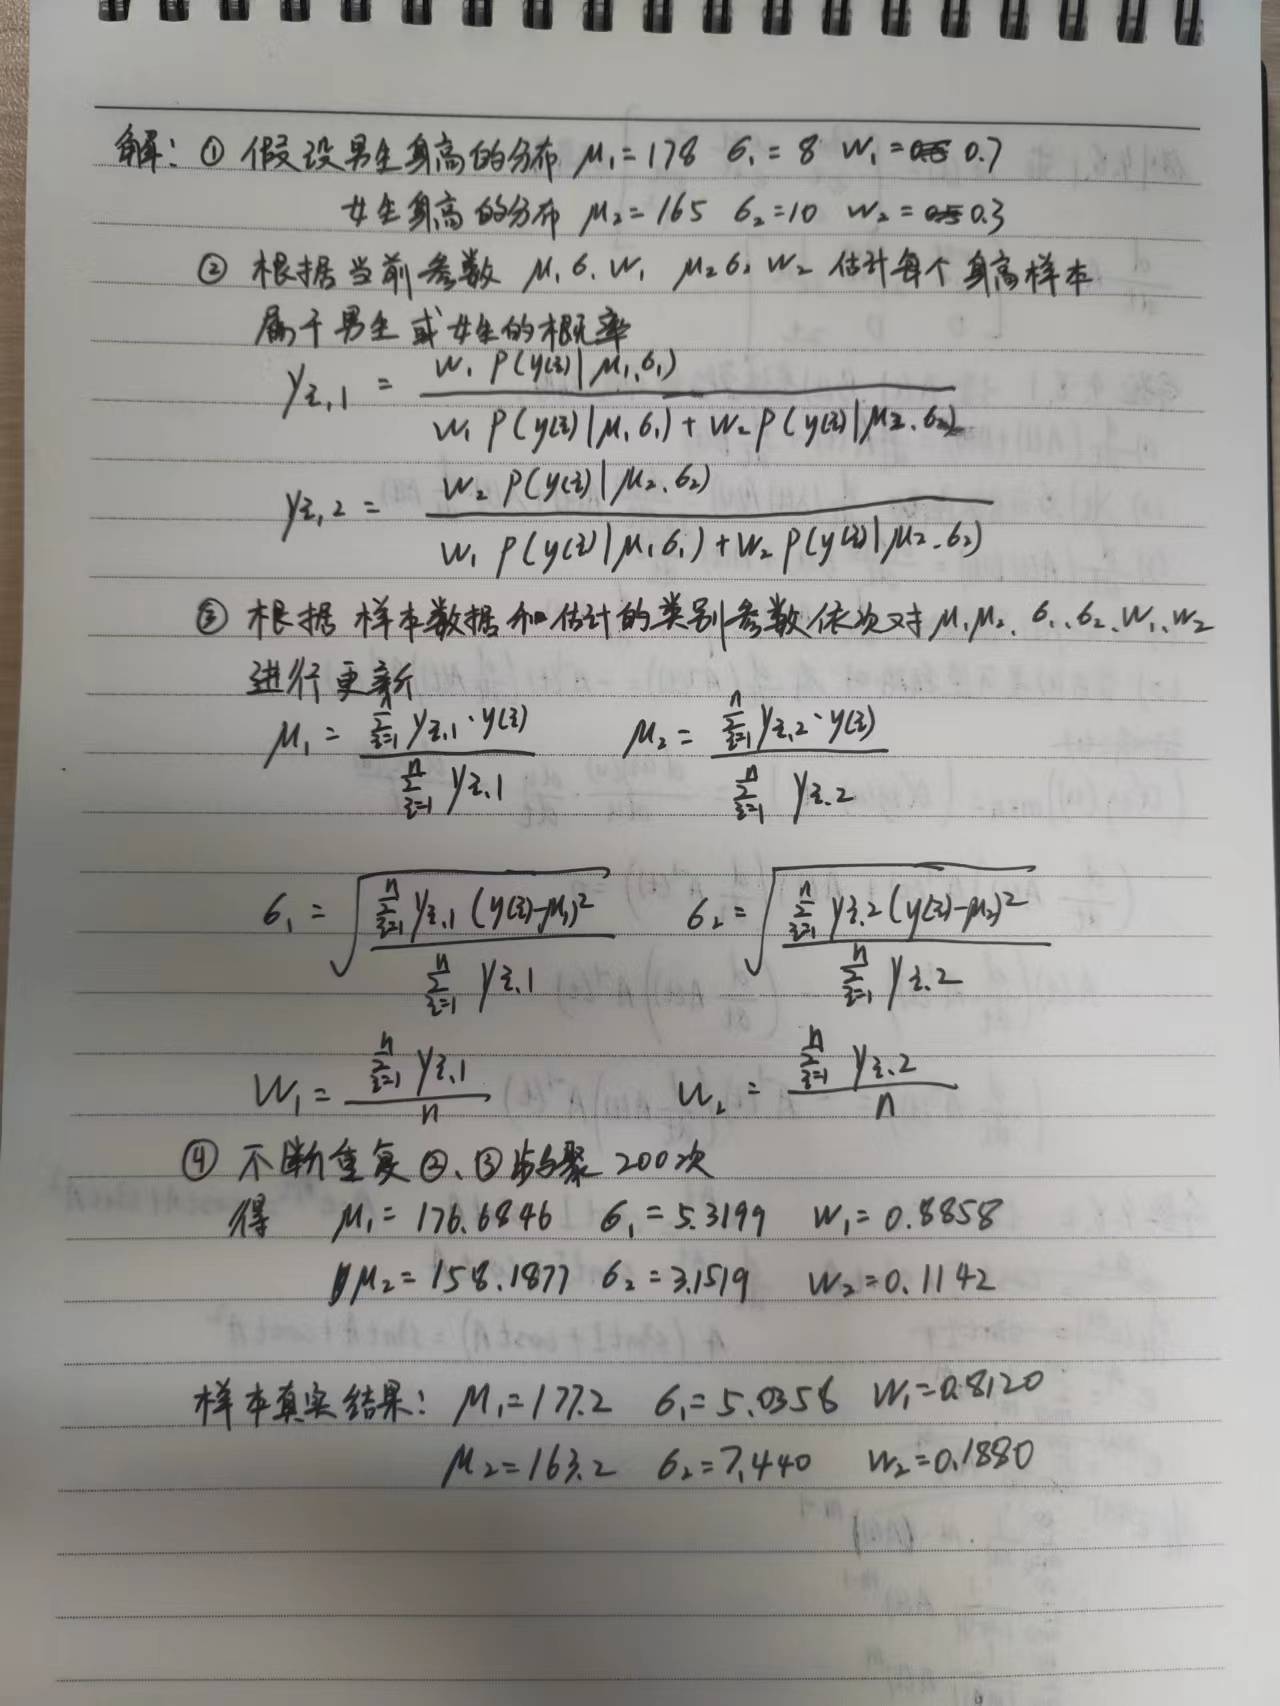 解：① 假设男生身高的分布 μ₁=178 σ₁=8 w₁=0.7
女生身高的分布 μ₂=165 σ₂=10 w₂=0.3
② 根据当前参数 μ₁ σ₁ w₁ μ₂ σ₂ w₂ 估计每个身高样本
属于男生或女生的概率
γi,1 = w₁ P(y(i)|μ₁,σ₁) / (w₁ P(y(i)|μ₁,σ₁) + w₂ P(y(i)|μ₂,σ₂))
γi,2 = w₂ P(y(i)|μ₂,σ₂) / (w₁ P(y(i)|μ₁,σ₁) + w₂ P(y(i)|μ₂,σ₂))
③ 根据样本数据和估计的类别参数依次对 μ₁μ₂、σ₁、σ₂、w₁、w₂
进行更新
μ₁ = ∑ⁿᵢ₌₁ γi,1·y(i) / ∑ⁿᵢ₌₁ γi,1 μ₂ = ∑ⁿᵢ₌₁ γi,2·y(i) / ∑ⁿᵢ₌₁ γi,2
σ₁ = √(∑ⁿᵢ₌₁ γi,1 (y(i)-μ₁)² / ∑ⁿᵢ₌₁ γi,1) σ₂ = √(∑ⁿᵢ₌₁ γi,2 (y(i)-μ₂)² / ∑ⁿᵢ₌₁ γi,2)
w₁ = ∑ⁿᵢ₌₁ γi,1 / n w₂ = ∑ⁿᵢ₌₁ γi,2 / n
④ 不断重复②、③步骤 200次
得 μ₁=176.6846 σ₁=5.3199 w₁=0.8858
μ₂=158.1877 σ₂=3.1519 w₂=0.1142
样本真实结果：μ₁=177.2 σ₁=5.0358 w₁=0.8120
μ₂=163.2 σ₂=7.440 w₂=0.1880